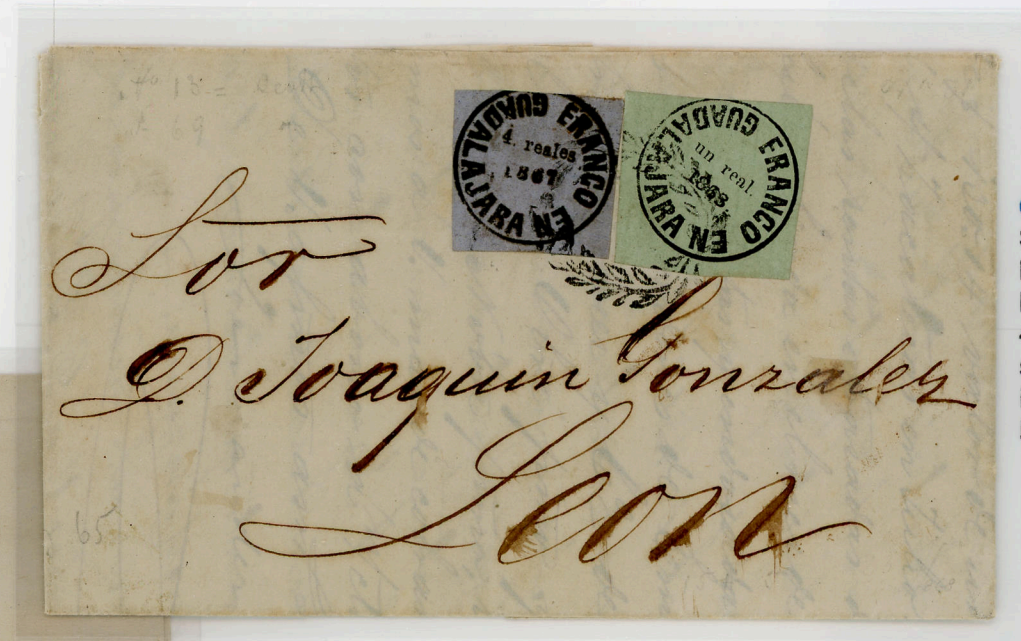 FRANCO EN GUADALAJARA
4. reales
1867
FRANCO EN GUADALAJARA
un real.
1868
Sor
D. Joaquin Gonzalez
Leon
65